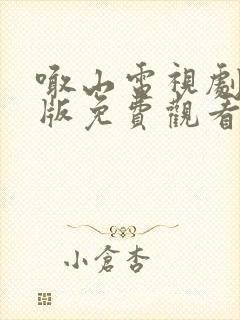 啾山雷視劇
版免費觀看
小倉杏